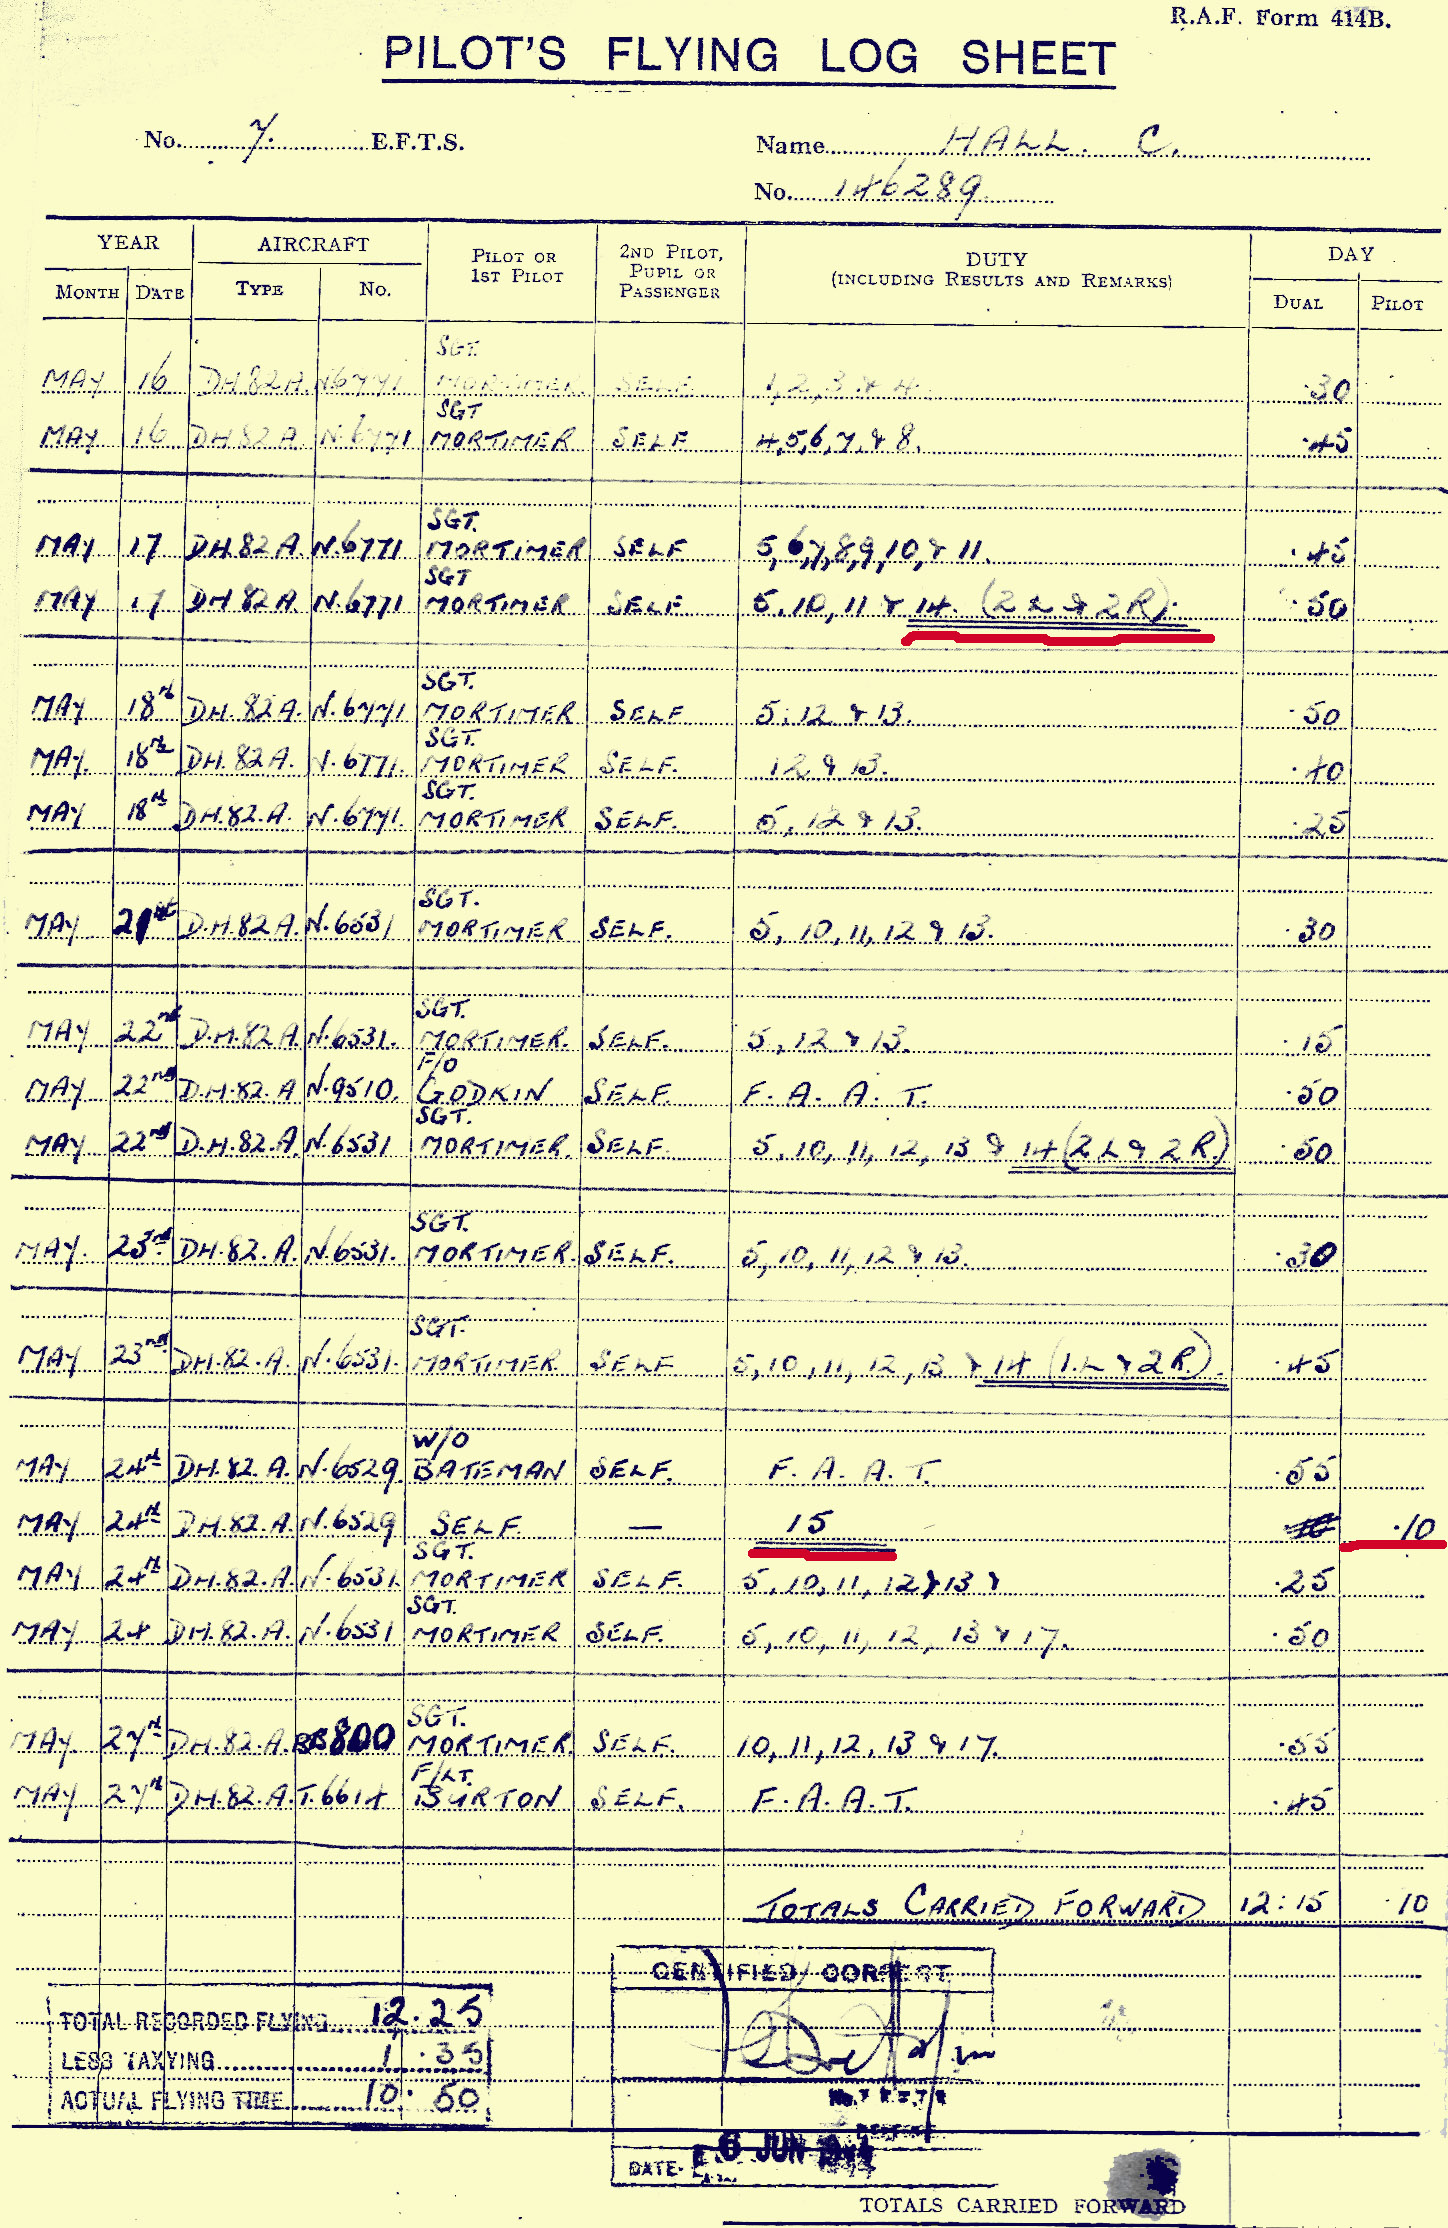 R.A.F. Form 414B.
PILOT'S FLYING LOG SHEET
No. 7. E.F.T.S. Name HALL. C.
No. 146289
YEAR AIRCRAFT PILOT OR 1ST PILOT 2ND PILOT, PUPIL OR PASSENGER DUTY (INCLUDING RESULTS AND REMARKS) DAY
MONTH DATE TYPE No. DUAL PILOT
SGT.
MAY 16 DH82A. N6771 MORTIMER SELF 1,2,3 & 4. ·30
SGT
MAY 16 DH82A N.6771 MORTIMER SELF 4,5,6,7,& 8. ·45
SGT.
MAY 17 DH.82A. N.6771 MORTIMER SELF 5,6,7,8,9,10,& 11. ·45
SGT
MAY 17 DH82A. N.6771 MORTIMER SELF 5,10,11 & 14. (2L & 2R). ·50
SGT.
MAY 18th DH.82A. N.6771 MORTIMER SELF 5,12 & 13. ·50
SGT.
MAY. 18th DH.82A. N.6771. MORTIMER SELF. 12 & 13. ·40
SGT.
MAY 18th DH.82.A. N.6771. MORTIMER SELF. 5, 12 & 13. ·25
SGT.
MAY 21st D.H.82A. N.6531 MORTIMER SELF. 5, 10, 11, 12 & 13. ·30
SGT.
MAY 22nd D.H.82A. N.6531. MORTIMER. SELF. 5, 12 & 13. ·15
F/O
MAY 22nd D.H.82.A N.9510. GODKIN SELF. F. A. A. T. ·50
SGT.
MAY 22nd D.H.82.A. N.6531 MORTIMER. SELF. 5, 10, 11, 12, 13 & 14 (2L & 2R.) ·50
SGT.
MAY. 23rd DH.82.A. N.6531. MORTIMER. SELF. 5, 10, 11, 12 & 13. ·30
SGT.
MAY 23rd DH.82.A. N.6531. MORTIMER SELF 5, 10, 11, 12, 13 & 14 (1.L & 2R.). ·45
W/O
MAY 24th DH.82.A. N.6529. BATEMAN SELF. F. A. A. T. ·55
MAY 24th DH.82.A. N.6529 SELF — 15 ·10
SGT.
MAY 24th DH.82.A. N.6531. MORTIMER SELF. 5, 10, 11, 12 & 13 & ·25
SGT.
MAY 24 DH.82.A. N.6531 MORTIMER SELF. 5, 10, 11, 12, 13 & 17. ·50
SGT.
MAY. 27th DH.82.A. BB800 MORTIMER. SELF. 10, 11, 12, 13 & 17. ·55
F/LT.
MAY 27th DH.82.A. T.6614 BURTON SELF. F.A.A.T. ·45
TOTALS CARRIED FORWARD 12:15 ·10
CERTIFIED CORRECT
TOTAL RECORDED FLYING 12.25
LESS TAXYING 1.35
ACTUAL FLYING TIME 10.50
DATE 6 JUN
TOTALS CARRIED FORWARD